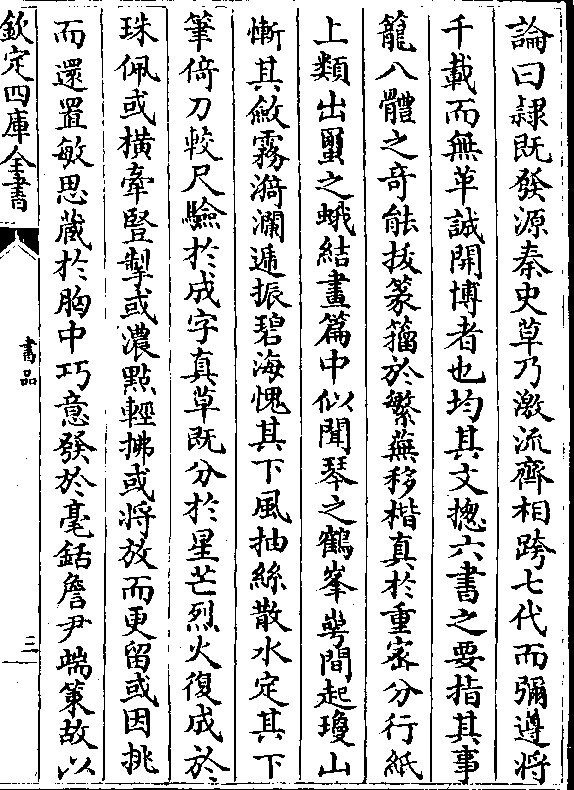 論曰隸既發源秦史草乃激流齊相跨七代而彌遵將
千載而無革誠開博者也均其文揔六書之要指其事
籠八體之奇能拔篆籀於繁蕪移楷真於重密分行紙
上類出蠒之蛾結畫篇中似聞琴之鶴峯崿間起瓊山
慚其斂霧漪瀾遞振碧海愧其下風抽絲散水定其下
筆倚刀較尺驗於成字真草既分於星芒烈火復成於
珠佩或横牽竪掣或濃點輕拂或將放而更留或因挑
而還置敏思藏於胸中巧意發於毫銛詹尹端策故以
欽定四庫全書
書品
三